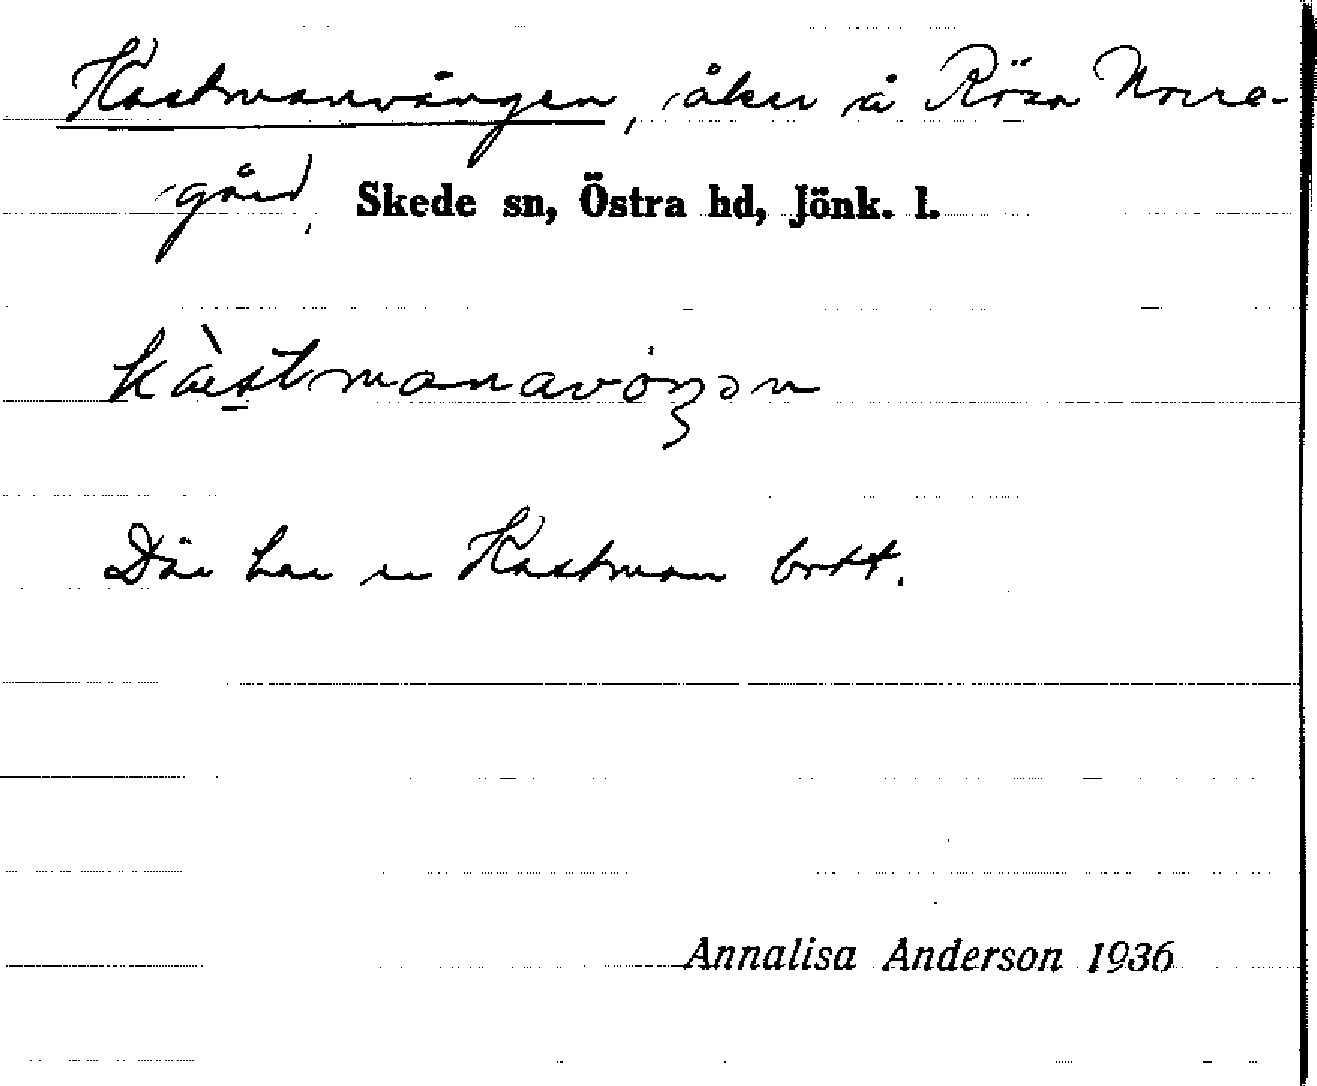 Kastmanvången, åker å Rösa Norra-
gård, Skede sn, Östra hd, Jönk. l.
kàstmanavóŋən
Där har en Kastman bott.
Annalisa Anderson 1936